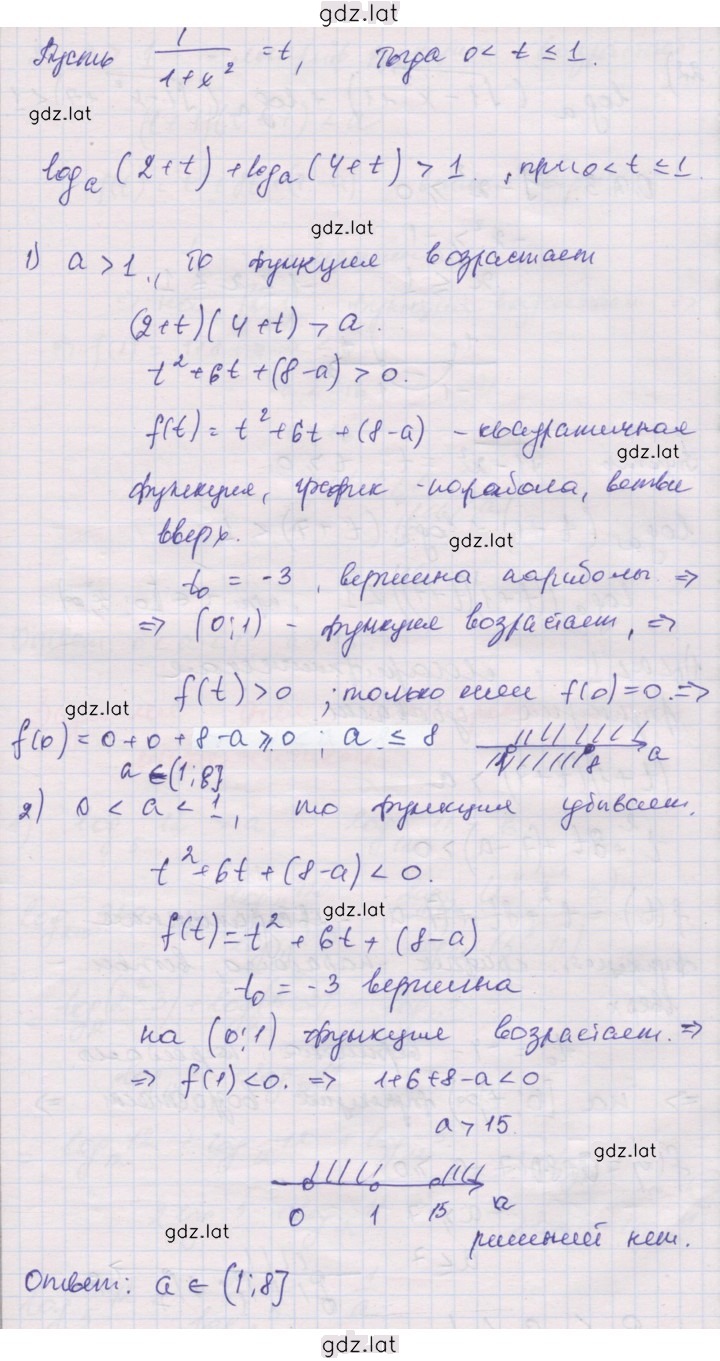 gdz.lat
Пусть 1/(1+x²) = t, Тогда 0 < t ≤ 1.
gdz.lat
logₐ(2+t) + logₐ(4+t) > 1., при 0 < t ≤ 1.
gdz.lat
1) a > 1., то функция возрастает
(2+t)(4+t) > a.
t² + 6t + (8-a) > 0.
f(t) = t² + 6t + (8-a) - квадратичная
gdz.lat
функция, график - парабола, ветви
вверх.
gdz.lat
t₀ = -3, вершина параболы ⇒
⇒ (0;1) - функция возрастает, ⇒
f(t) > 0 ; только если f(0) = 0. ⇒
gdz.lat
f(0) = 0 + 0 + 8-a ⩾ 0 ; a ≤ 8
8 a
a ∈ (1;8]
2) 0 < a < 1, то функция убывает.
t² + 6t + (8-a) < 0.
gdz.lat
f(t) = t² + 6t + (8-a)
t₀ = -3 вершина
на (0;1) функция возрастает. ⇒
⇒ f(1) < 0. ⇒ 1+6+8-a < 0
a > 15.
gdz.lat
0 1 15 a
gdz.lat
решений нет.
Ответ: a ∈ (1;8]
gdz.lat